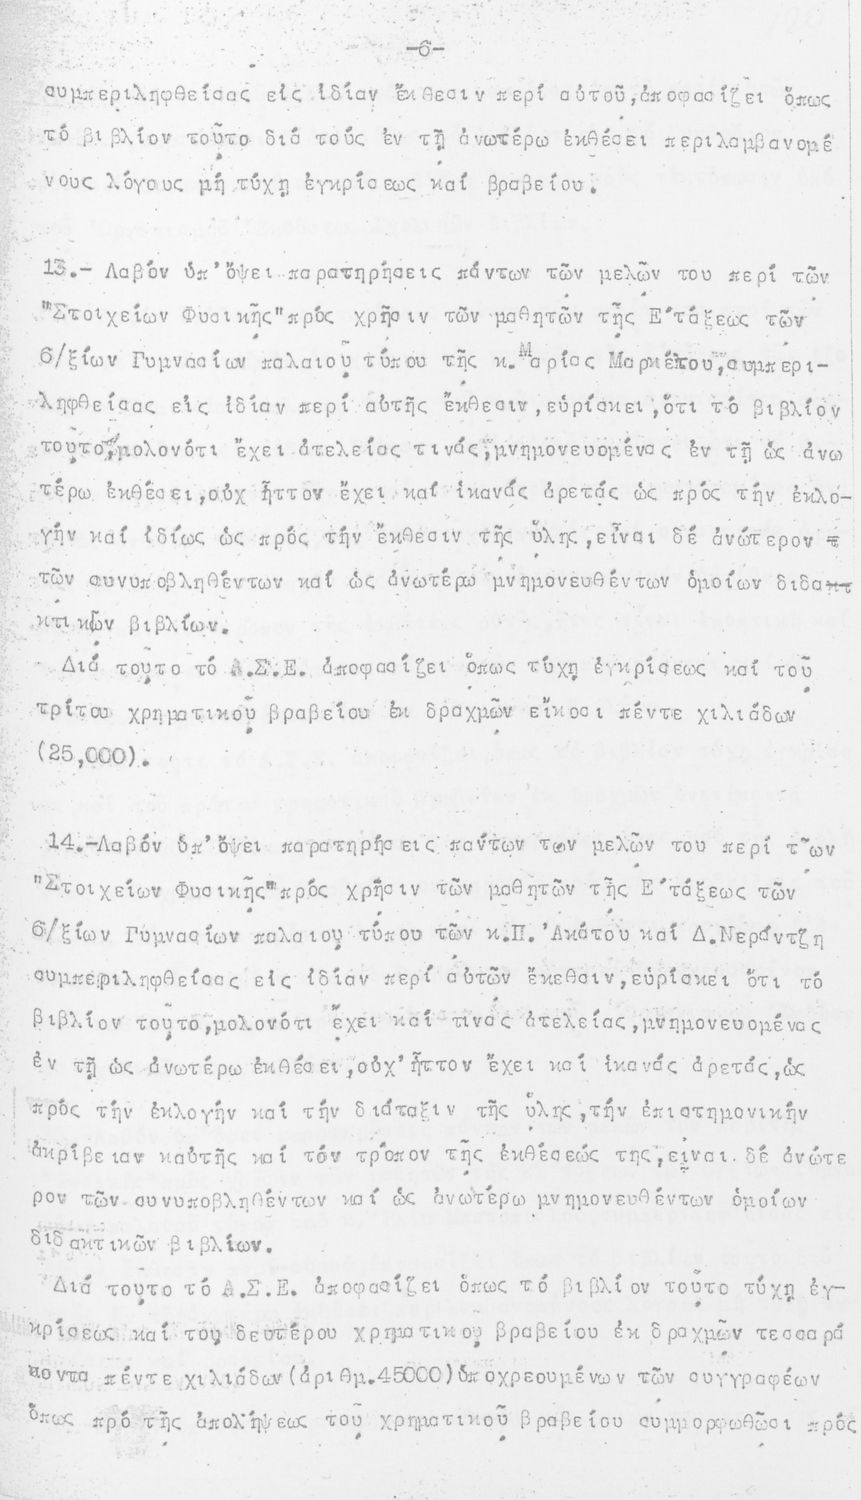 -6-
συμπεριληφθείσας εἰς ἰδίαν ἔκθεσιν περί αὐτοῦ,ἀποφασίζει ὅπως
τό βιβλίον τοῦτο διά τούς ἐν τῇ ἀνωτέρω ἐκθέσει περιλαμβανομέ
νους λόγους μή τύχῃ ἐγκρίσεως καί βραβείου.
13.- Λαβόν ὑπ'ὄψει παρατηρήσεις πάντων τῶν μελῶν του περί τῶν
"Στοιχείων Φυσικῆς"πρός χρῆσιν τῶν μαθητῶν τῆς Ε'τάξεως τῶν
6/ξίων Γυμνασίων παλαιοῦ τύπου τῆς κ.Μαρίας Μαρκέτου,συμπερι-
ληφθείσας εἰς ἰδίαν περί αὐτῆς ἔκθεσιν,εὑρίσκει,ὅτι τό βιβλίον
τοῦτο,μολονότι ἔχει ἀτελείας τινάς,μνημονευομένας ἐν τῇ ὡς ἀνω
τέρω ἐκθέσει,οὐχ ἧττον ἔχει καί ἱκανάς ἀρετάς ὡς πρός τήν ἐκλο-
γήν καί ἰδίως ὡς πρός τήν ἔκθεσιν τῆς ὕλης,εἶναι δέ ἀνώτερον
τῶν συνυποβληθέντων καί ὡς ἀνωτέρω μνημονευθέντων ὁμοίων διδα
κτικῶν βιβλίων.
Διά τοῦτο τό Α.Σ.Ε. ἀποφασίζει ὅπως τύχῃ ἐγκρίσεως καί τοῦ
τρίτου χρηματικοῦ βραβείου ἐκ δραχμῶν εἴκοσι πέντε χιλιάδων
(25,000).
14.-Λαβόν ὑπ'ὄψει παρατηρήσεις παντων των μελῶν του περί τ῀ων
"Στοιχείων Φυσικῆς"πρός χρῆσιν τῶν μαθητῶν τῆς Ε'τάξεως τῶν
6/ξίων Γυμνασίων παλαιου τύπου τῶν κ.Π.'Ακάτου καί Δ.Νεράντζη
συμπεριληφθείσας εἰς ἰδίαν περί αὐτῶν ἔκεθσιν,εὑρίσκει ὅτι τό
βιβλίον τοῦτο,μολονότι ἔχει καί τινας ἀτελείας,μνημονευομένας
ἐν τῇ ὡς ἀνωτέρω ἐκθέσει,οὐχ'ἧττον ἔχει καί ἱκανάς ἀρετάς,ὡς
πρός τήν ἐκλογήν καί τήν διάταξιν τῆς ὕλης,τήν ἐπιστημονικήν
ἀκρίβειαν καὐτῆς καί τόν τρόπον τῆς ἐκθέσεώς της,εἶναι δέ ἀνώτε
ρον τῶν συνυποβληθέντων καί ὡς ἀνωτέρω μνημονευθέντων ὁμοίων
διδακτικῶν βιβλίων.
Διά τοῦτο τό Α.Σ.Ε. ἀποφασίζει ὅπως τό βιβλίον τοῦτο τύχῃ ἐγ-
κρίσεως καί του δευτέρου χρηματικου βραβείου ἐκ δραχμῶν τεσσαρά
κοντα πέντε χιλιάδων(ἀριθμ.45000)ὑποχρεουμένων τῶν συγγραφέων
ὅπως πρό τῆς ἀπολήψεως τοῦ χρηματικοῦ βραβείου συμμορφωθῶσι πρός